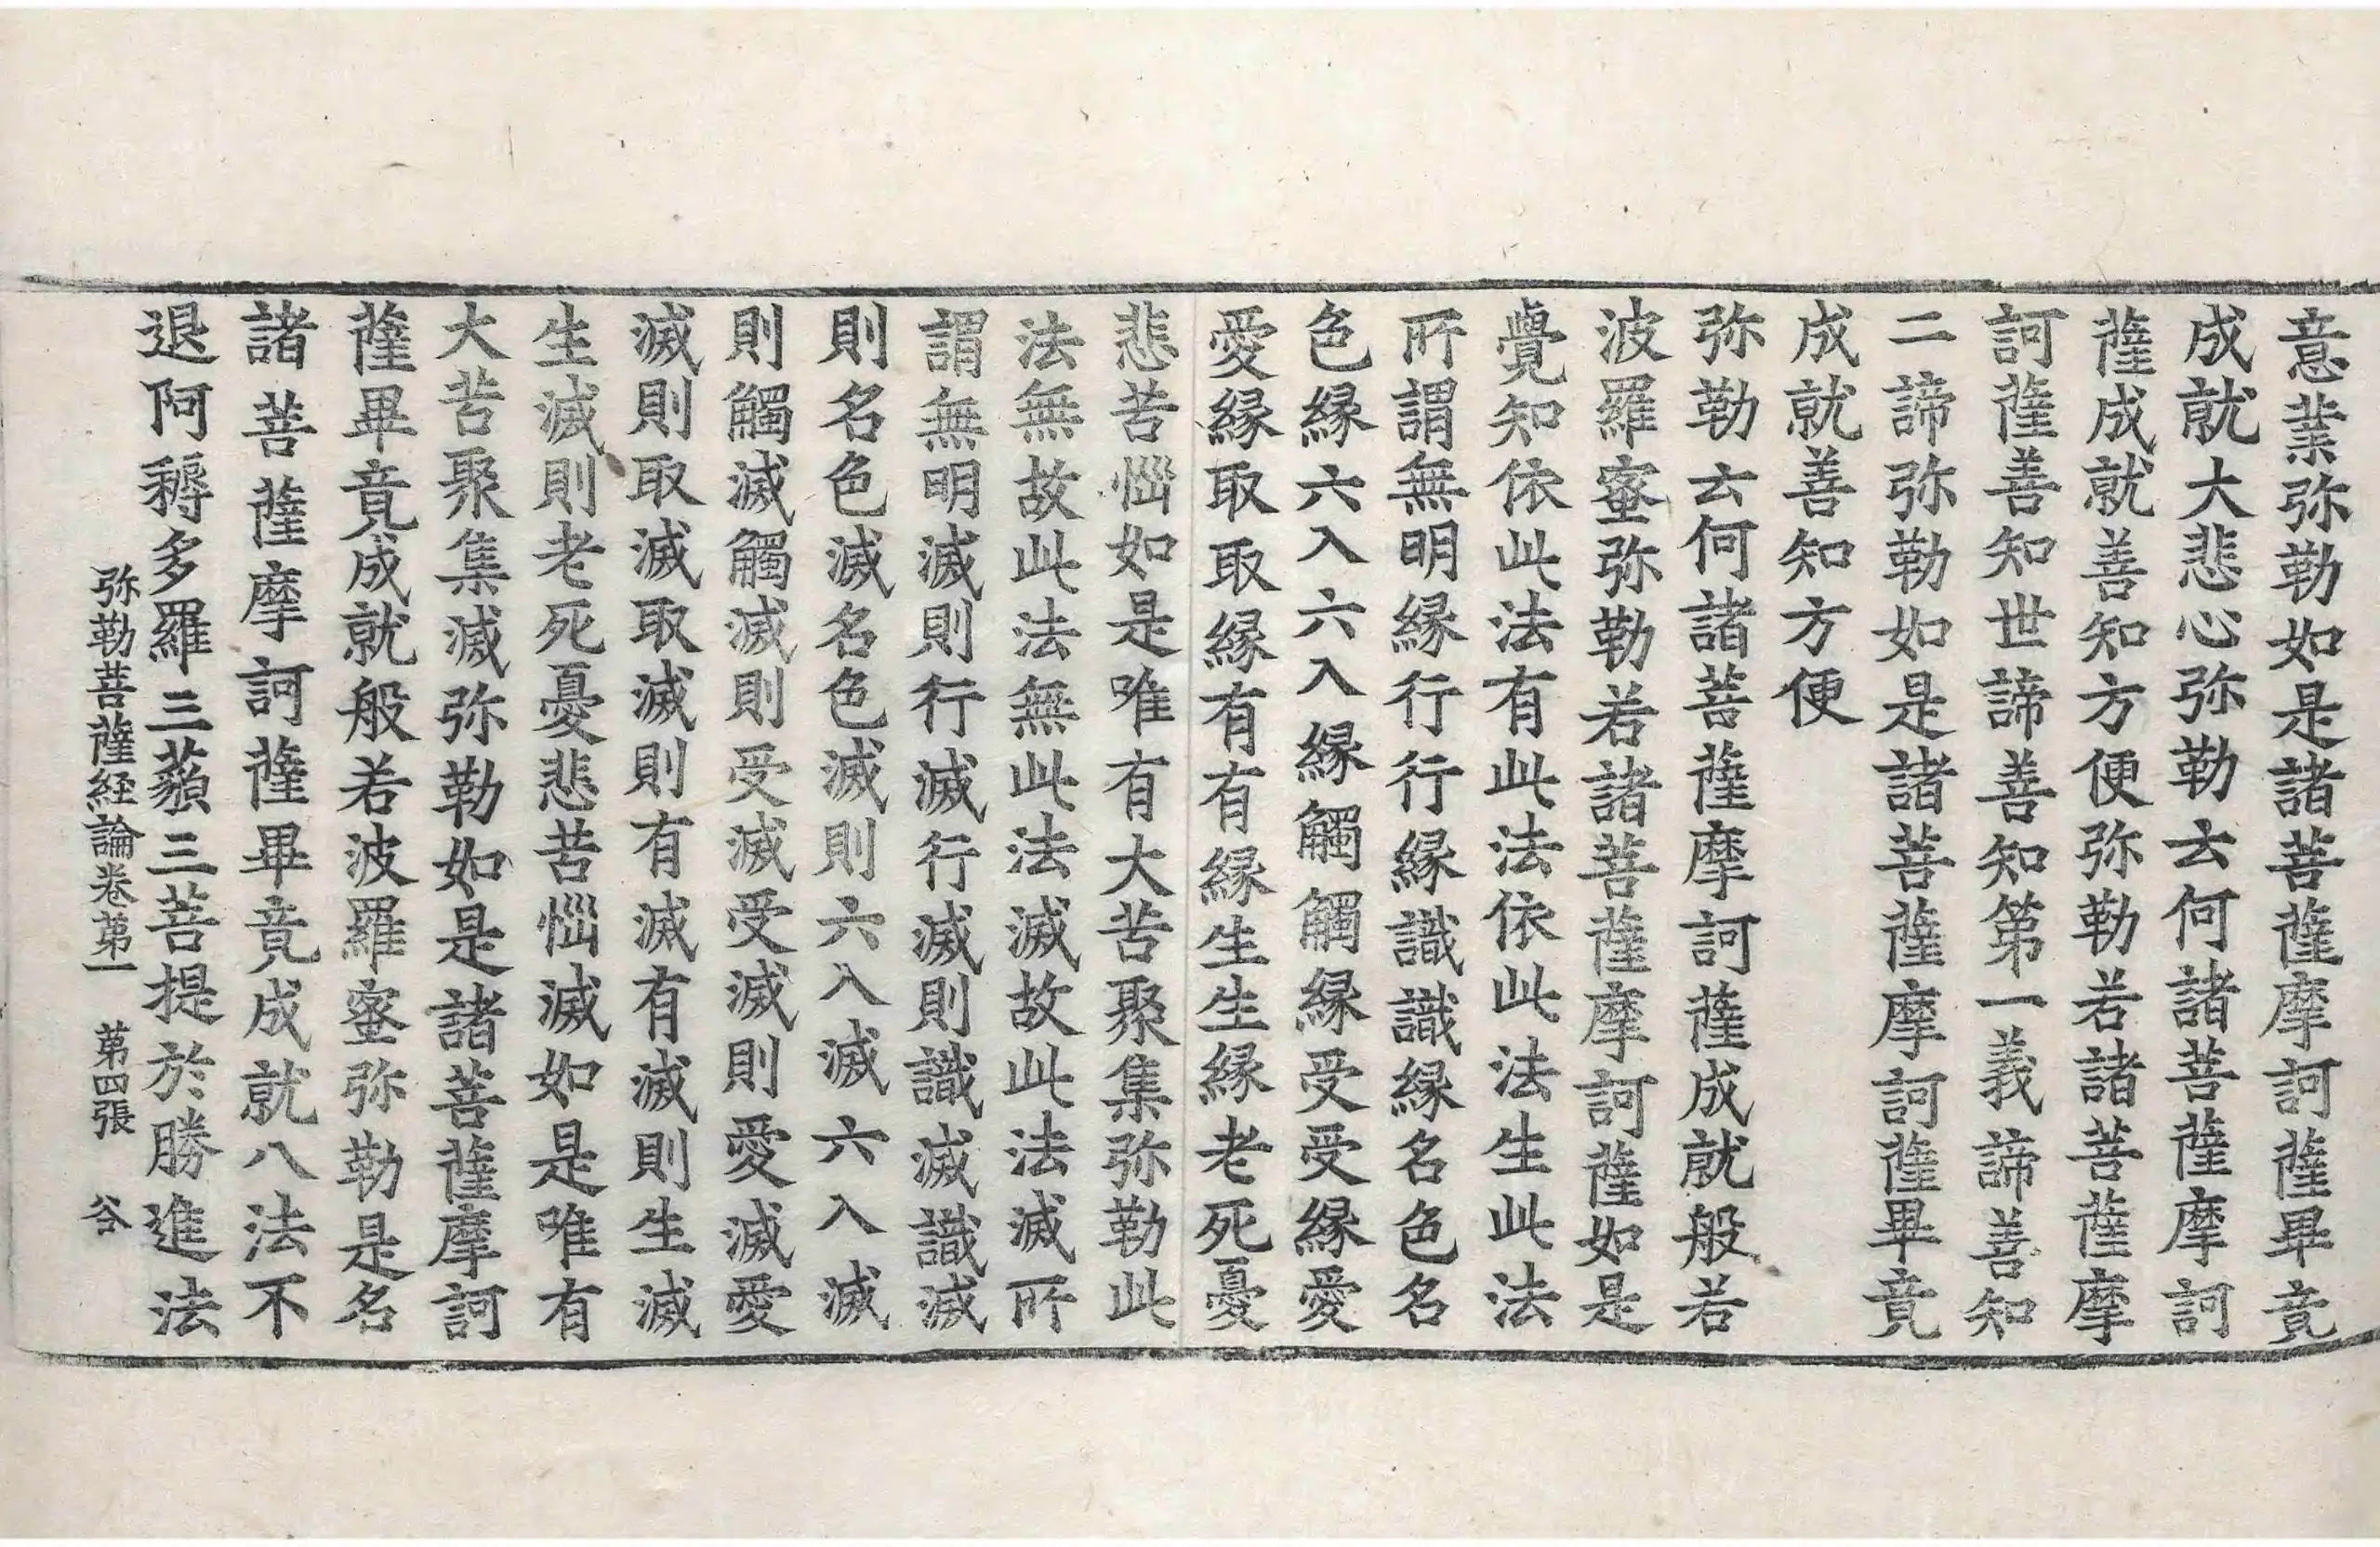 意業弥勒如是諸菩薩摩訶薩畢竟
成就大悲心弥勒云何諸菩薩摩訶
薩成就善知方便弥勒若諸菩薩摩
訶薩善知世諦善知第一義諦善知
二諦弥勒如是諸菩薩摩訶薩畢竟
成就善知方便
弥勒云何諸菩薩摩訶薩成就般若
波羅蜜弥勒若諸菩薩摩訶薩如是
覺知依此法有此法依此法生此法
所謂無明縁行行縁識識縁名色名
色縁六入六入縁觸觸縁受受縁愛
愛縁取取縁有有縁生生縁老死憂
悲苦惱如是唯有大苦聚集弥勒此
法無故此法無此法滅故此法滅所
謂無明滅則行滅行滅則識滅識滅
則名色滅名色滅則六入滅六入滅
則觸滅觸滅則受滅受滅則愛滅愛
滅則取滅取滅則有滅有滅則生滅
生滅則老死憂悲苦惱滅如是唯有
大苦聚集滅弥勒如是諸菩薩摩訶
薩畢竟成就般若波羅蜜弥勒是名
諸菩薩摩訶薩畢竟成就八法不
退阿耨多羅三藐三菩提於勝進法
弥勒菩薩経論卷第一　第四張　谷